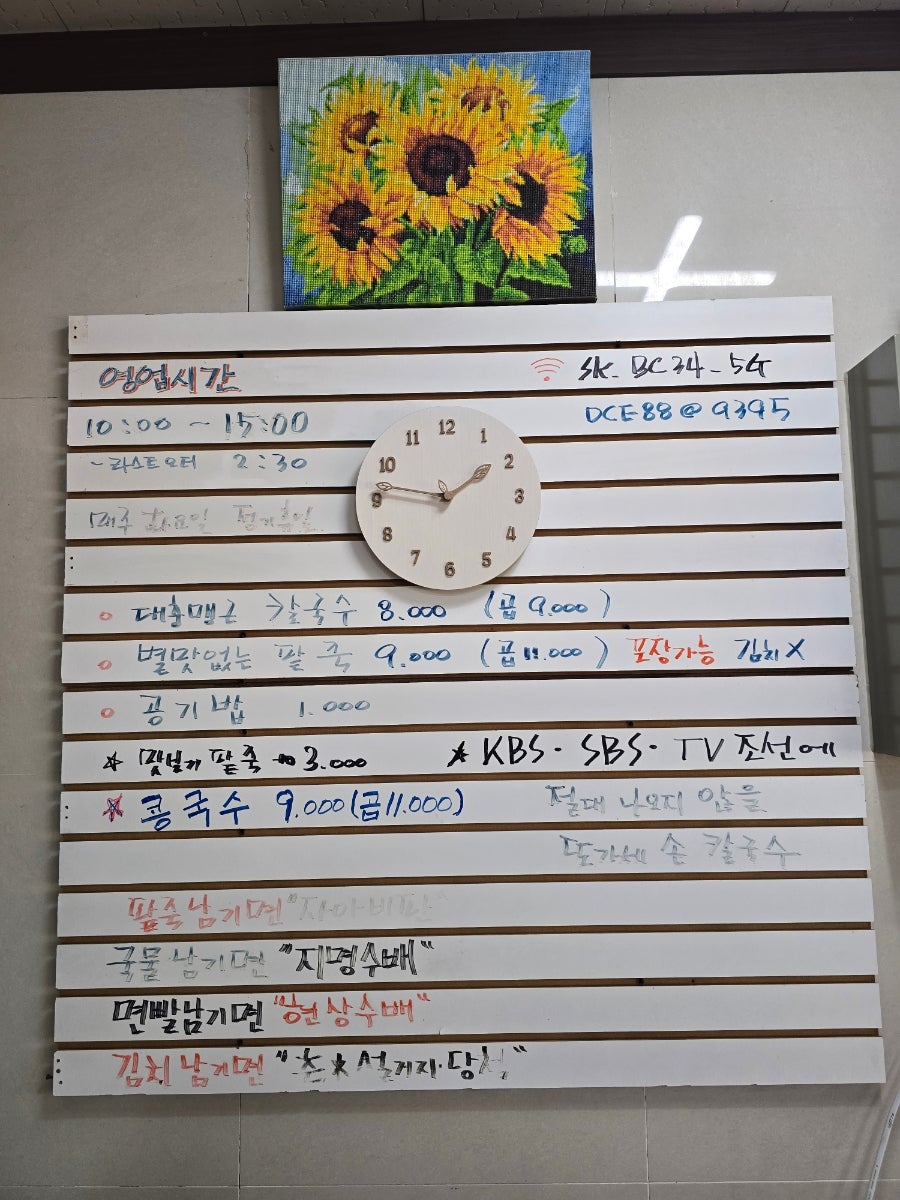 영업시간
SK_BC34_5G
10:00 ~ 15:00
DCE88@9395
~라스트오더 2:30
매주 화요일 정기휴일
12
1
2
3
4
5
6
7
8
9
10
11
대충맹근 칼국수 8.000 (곱 9.000)
별맛없는 팥죽 9.000 (곱 11.000) 포장가능 김치X
공기밥 1.000
☆ 맛보기 팥죽 → 3.000
★ KBS· SBS· TV조선에
☆ 콩국수 9.000(곱11.000)
절대 나오지 않을
또가네 손 칼국수
팥죽남기면 "자아비판"
국물남기면 "지명수배"
면빨남기면 "현상수배"
김치남기면 "설거지·당첨"